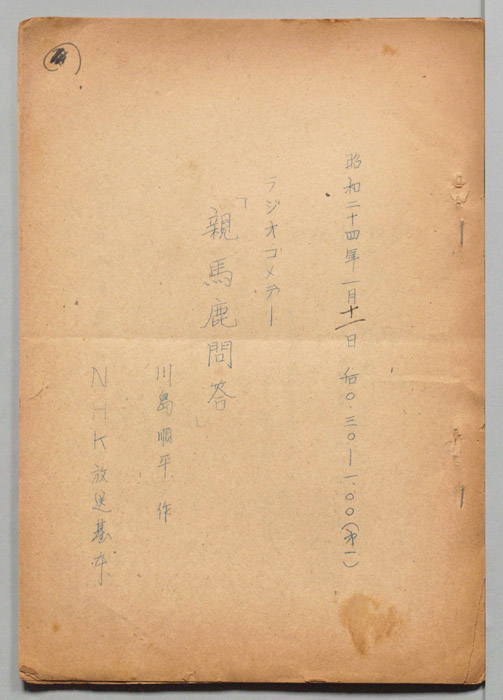 昭和二十四年一月十一日 后〇.三〇―一.〇〇(第一)
ラジオコメデー
「親馬鹿問答」
川島順平 作
NHK放送基本